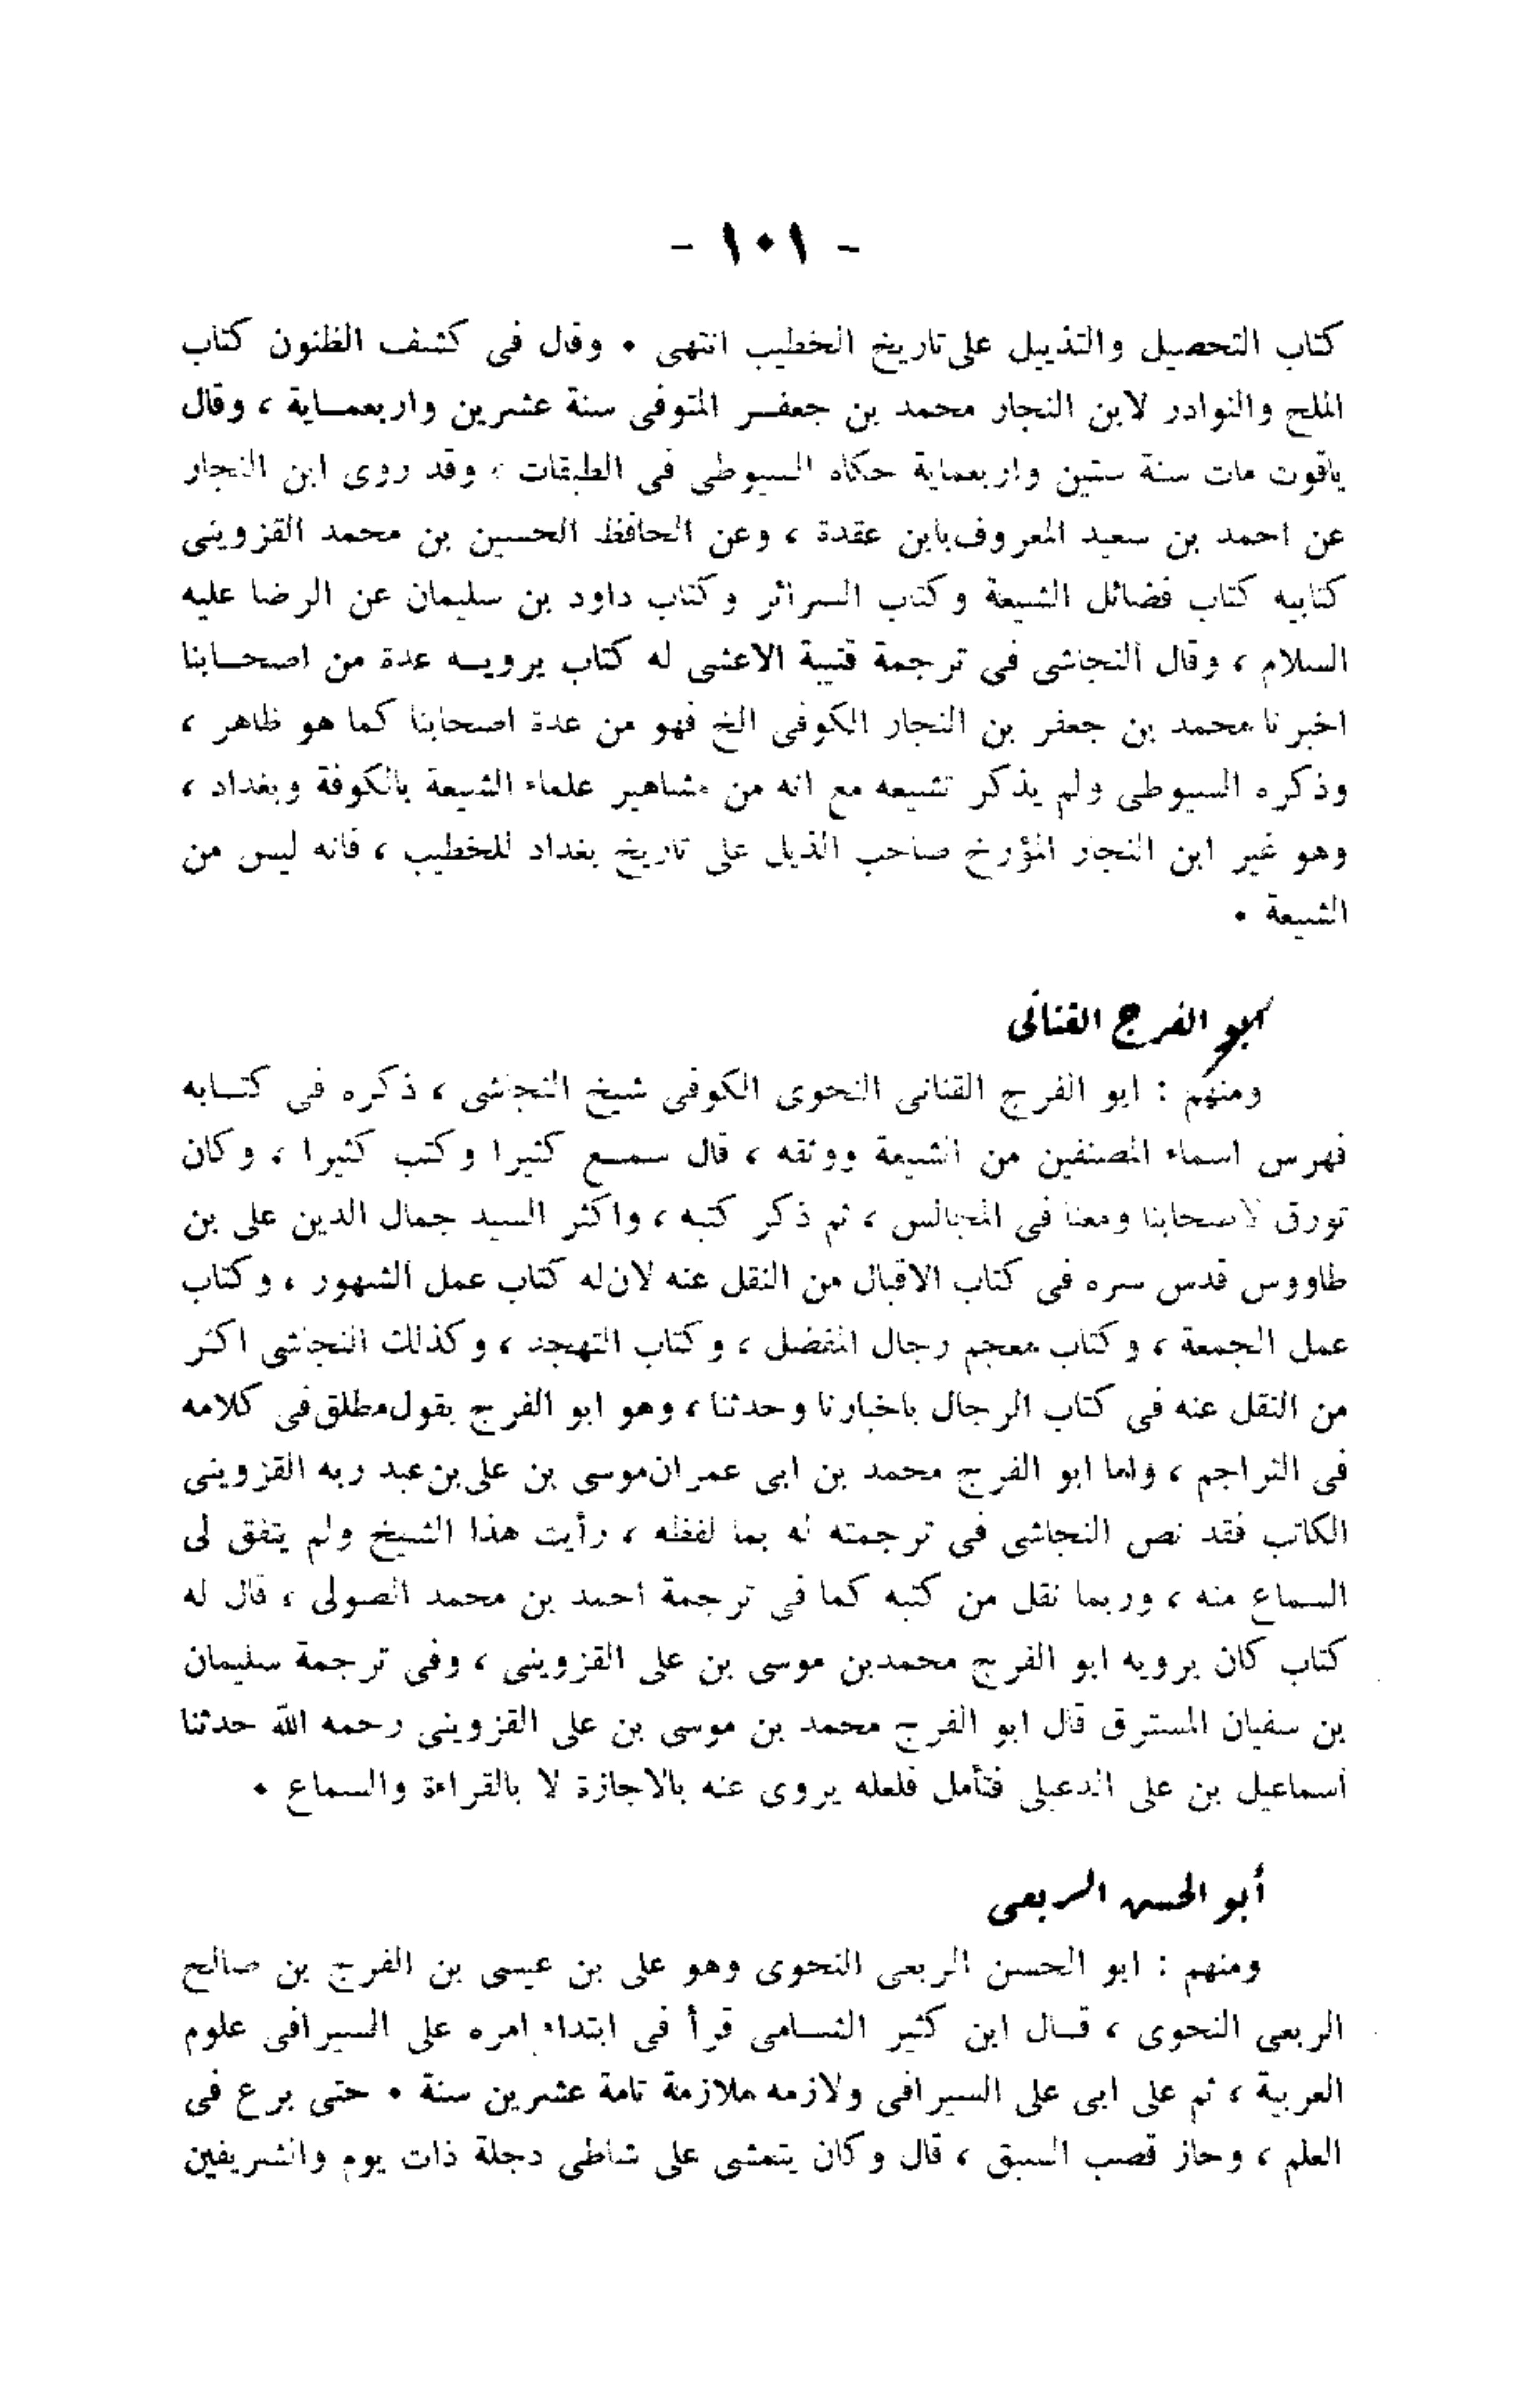 - ١٠١ -
كتاب التحصيل والتذييل على تاريخ الخطيب انتهى . وقال في كشف الظنون كتاب
الملح والنوادر لابن النجار محمد بن جعفر المتوفى سنة عشرين واربعماية ، وقال
ياقوت مات سنة ستين واربعماية حكاه السيوطي في الطبقات ، وقد روى ابن النجار
عن احمد بن سعيد المعروف بابن عقدة ، وعن الحافظ الحسين بن محمد القزويني
كتابيه كتاب فضائل الشيعة وكتاب السرائر وكتاب داود بن سليمان عن الرضا عليه
السلام ، وقال النجاشي في ترجمة قتيبة الاعشى له كتاب يرويه عدة من اصحابنا
اخبرنا محمد بن جعفر بن النجار الكوفى الخ فهو من عدة اصحابنا كما هو ظاهر ،
وذكره السيوطي ولم يذكر تشيعه مع انه من مشاهير علماء الشيعة بالكوفة وبغداد ،
وهو غير ابن النجار المؤرخ صاحب الذيل على تاريخ بغداد للخطيب ، فانه ليس من
الشيعة .
أبو الفرج القنائى
ومنهم : ابو الفرج القنانى النحوى الكوفى شيخ النجاشى ، ذكره فى كتابه
فهرس اسماء المصنفين من الشيعة ووثقه ، قال سمع كثيرا وكتب كثيرا ، وكان
تورق لاصحابنا ومعنا فى المجالس ، ثم ذكر كتبه ، واكثر السيد جمال الدين على بن
طاووس قدس سره فى كتاب الاقبال من النقل عنه لان له كتاب عمل الشهور ، وكتاب
عمل الجمعة ، وكتاب معجم رجال المفضل ، وكتاب التهجد ، وكذلك النجاشى اكثر
من النقل عنه فى كتاب الرجال باخبارنا وحدثنا ، وهو ابو الفرج بقول مطلق فى كلامه
فى التراجم ، واما ابو الفرج محمد بن ابى عمران موسى بن على بن عبد ربه القزوينى
الكاتب فقد نص النجاشى فى ترجمته له بما لفظه ، رأيت هذا الشيخ ولم يتفق لى
السماع منه ، وربما نقل من كتبه كما فى ترجمة احمد بن محمد الصولى ، قال له
كتاب كان يرويه ابو الفرج محمد بن موسى بن على القزوينى ، وفى ترجمة سليمان
بن سفيان المسترق قال ابو الفرج محمد بن موسى بن على القزوينى رحمه الله حدثنا
اسماعيل بن على الدعبلى فتأمل فلعله يروى عنه بالاجازة لا بالقراءة والسماع .
أبو الحسن الربعى
ومنهم : ابو الحسن الربعى النحوى وهو على بن عيسى بن الفرج بن صالح
الربعى النحوى ، قال ابن كثير الشامى قرأ فى ابتداء امره على السيرافى علوم
العربية ، ثم على ابى على السيرافى ولازمه ملازمة تامة عشرين سنة . حتى برع فى
العلم ، وحاز قصب السبق ، قال وكان يتمشى على شاطى دجلة ذات يوم والشريفين